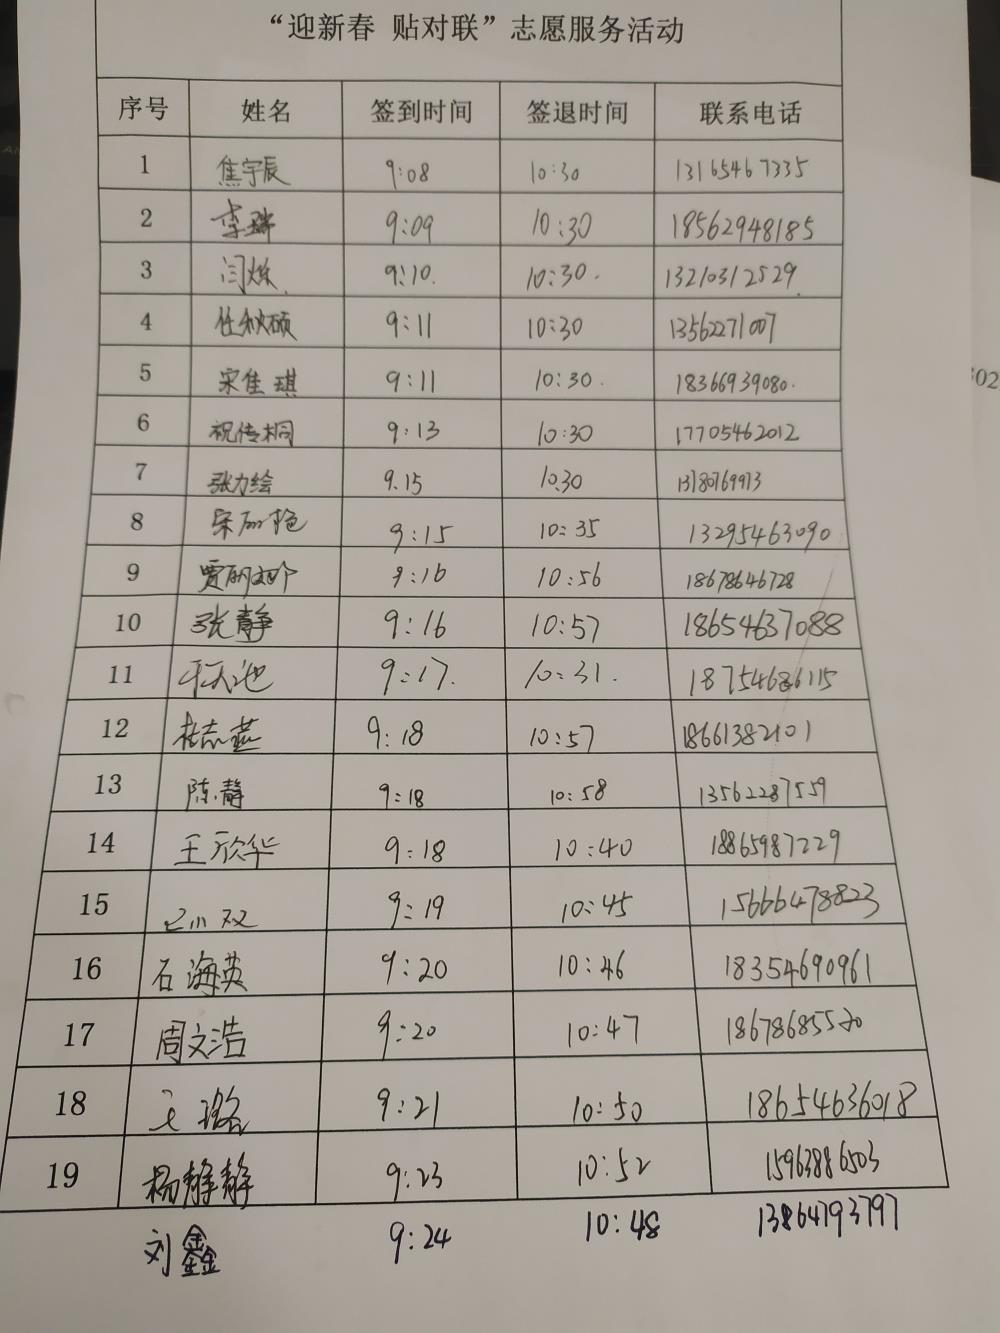 “迎新春 贴对联”志愿服务活动
序号 姓名 签到时间 签退时间 联系电话
1 焦宇辰 9:08 10:30 13165467335
2 李瑞 9:09 10:30 18562948185
3 闫烁 9:10. 10:30. 13210312529
4 任秋硕 9:11 10:30 13562271007
5 宋佳琪 9:11 10:30. 18366939080.
6 祝传桐 9:13 10:30 17705462012
7 张力绘 9.15 10.30
8 宋丽艳 9:15 10:35 13295463090
9 9:16 10:56 18678646728
10 张静 9:16 10:57 18654637088
11 9:17. 10:31.
12 杜志燕 9:18 10:57 18661382101
13 陈静 9:18 10:58 13562287559
14 王欣华 9:18 10:40 18865987229
15 9:19 10:45 15666478823
16 石海英 9:20 10:46 18354690961
17 周文浩 9:20 10:47 18678685520
18 王璐 9:21 10:50 18654636018
19 杨静静 9:23 10:52 15963886503
刘鑫 9:24 10:48 13864793797